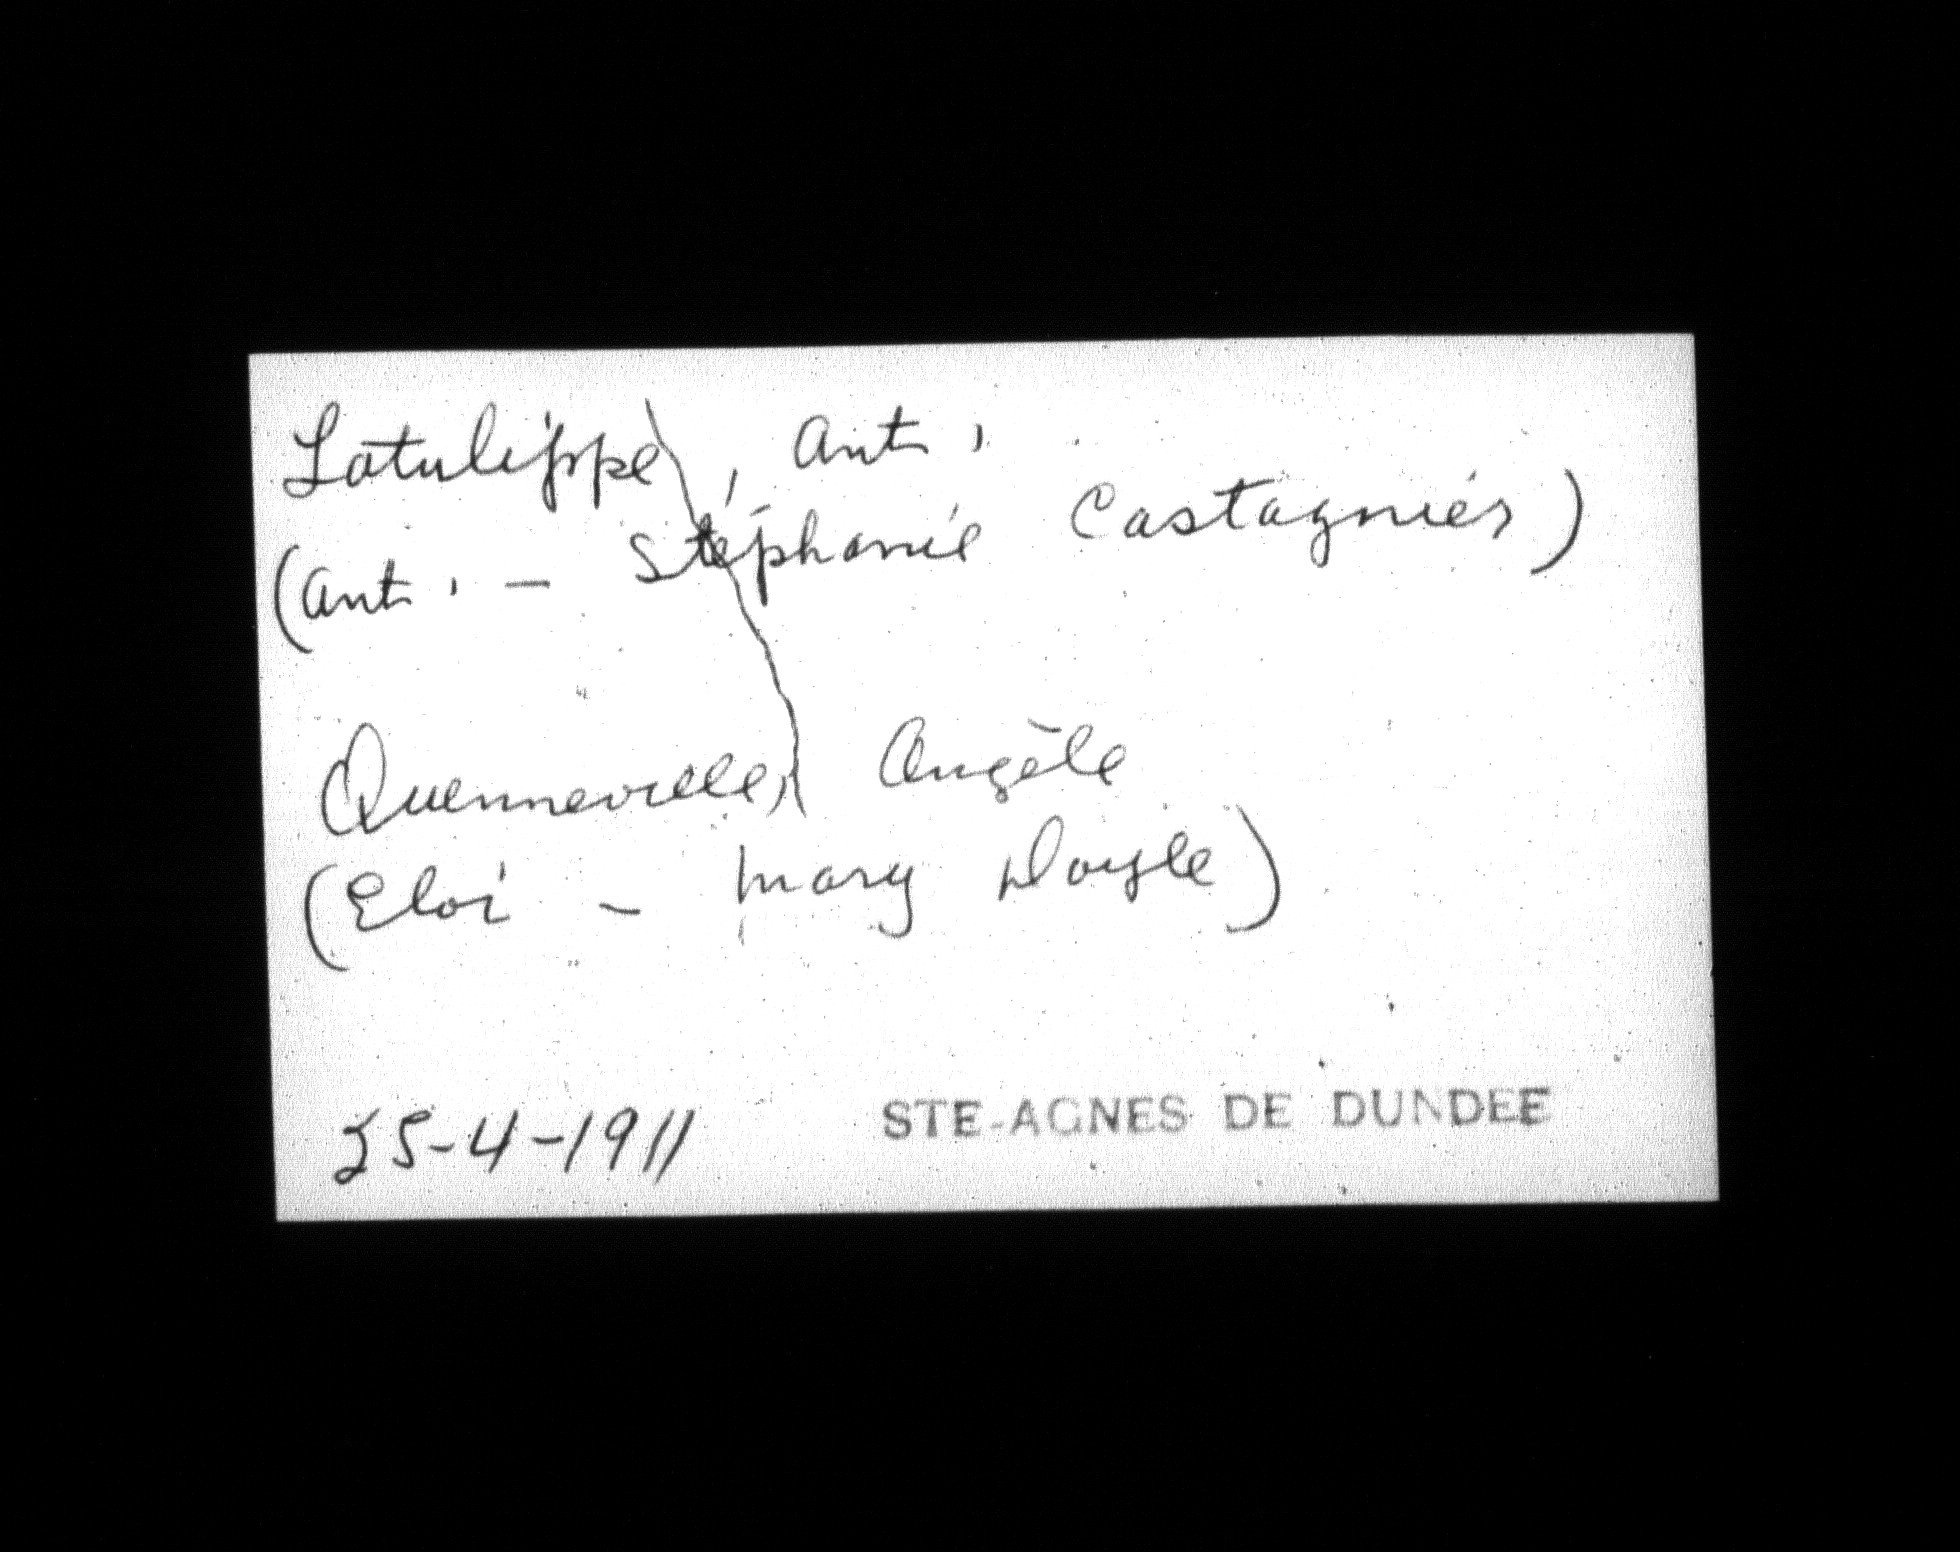 Latulippe, Ant.
(Ant. - Stéphanie Castagnier)
Quenneville, Angèle
(Eloi - Mary Doyle)
25-4-1911 STE-AGNES DE DUNDEE